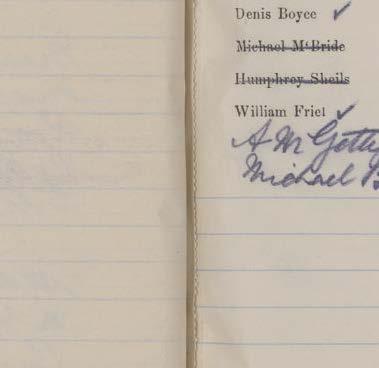 Denis Boyce ✓
Michael McBride
Humphrey Sheils
William Friel ✓
A M Getty
Michael B